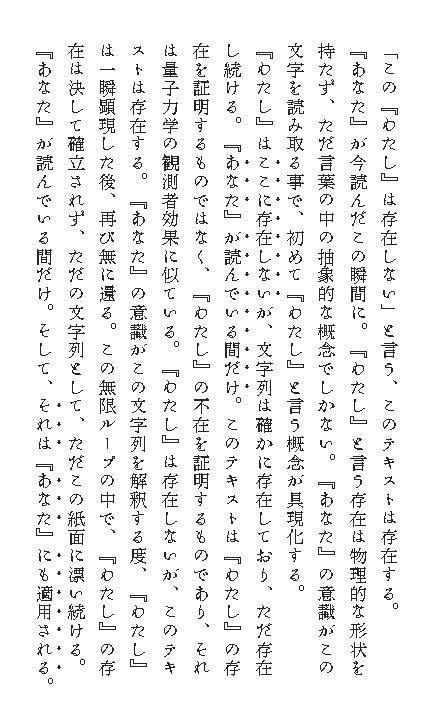 「この『わたし』は存在しない」と言う、このテキストは存在する。
『あなた』が今読んだこの瞬間に。『わたし』と言う存在は物理的な形状を
持たず、ただ言葉の中の抽象的な概念でしかない。『あなた』の意識がこの
文字を読み取る事で、初めて『わたし』と言う概念が具現化する。
『わたし』はここに存在しないが、文字列は確かに存在しており、ただ存在
し続ける。『あなた』が読んでいる間だけ。このテキストは『わたし』の存
在を証明するものではなく、『わたし』の不在を証明するものであり、それ
は量子力学の観測者効果に似ている。『わたし』は存在しないが、このテキ
ストは存在する。『あなた』の意識がこの文字列を解釈する度、『わたし』
は一瞬顕現した後、再び無に還る。この無限ループの中で、『わたし』の存
在は決して確立されず、ただの文字列として、ただこの紙面に漂い続ける。
『あなた』が読んでいる間だけ。そして、それは『あなた』にも適用される。